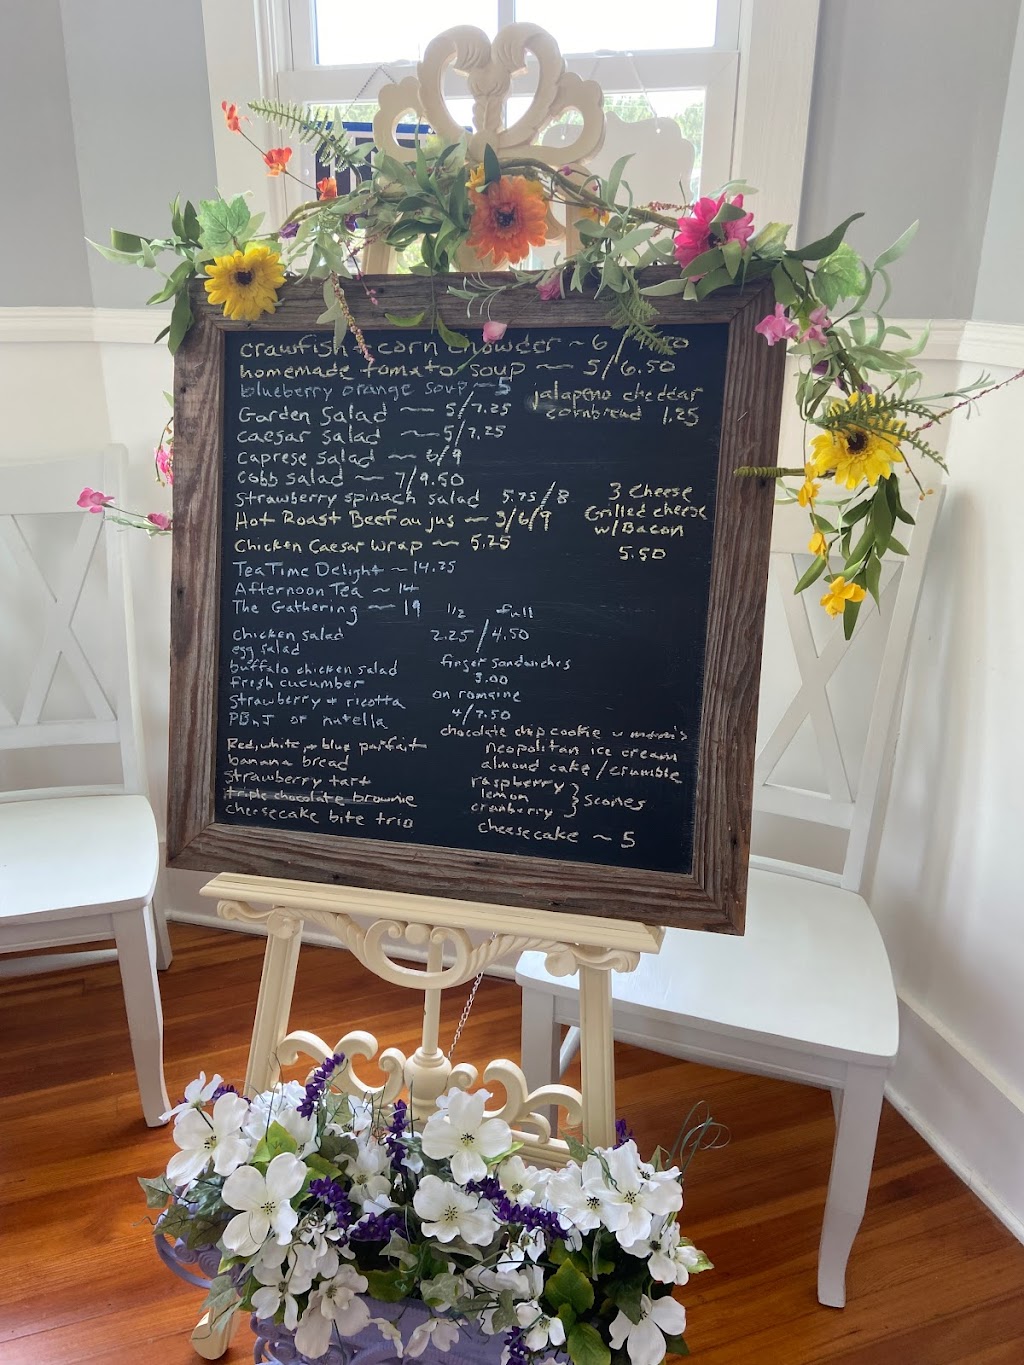 crawfish + corn chowder ~ 6/
homemade tomato soup ~ 5/6.50
blueberry orange soup ~ 5
jalapeno cheddar
cornbread 1.25
Garden Salad ~ 5/7.25
caesar salad ~ 5/7.25
caprese salad ~ /9
cobb salad ~ 7/9.50
strawberry spinach salad 5.75/8
Hot Roast Beef au jus ~ 3/6/9
Chicken Caesar Wrap ~ 5.25
3 Cheese
Grilled cheese
w/Bacon
5.50
Tea Time Delight ~ 14.75
Afternoon Tea ~ 14
The Gathering ~ 19
1/2 full
2.25/4.50
chicken salad
egg salad
buffalo chicken salad
fresh cucumber
strawberry + ricotta
PBnJ or nutella
finger sandwiches
3.00
on romaine
4/7.50
Red, white + blue parfait
banana bread
strawberry tart
triple chocolate brownie
cheesecake bite trio
chocolate chip cookie
neopolitan ice cream
almond cake/crumble
raspberry
lemon
cranberry } scones
cheesecake ~ 5